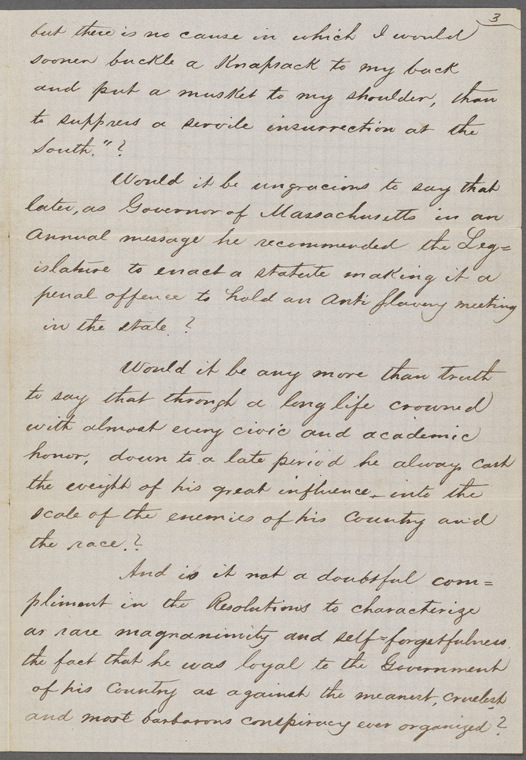 3
but there is no cause in which I would
sooner buckle a Knapsack to my back
and put a musket to my shoulder, than
to suppress a servile insurrection at the
South."?
Would it be ungracious to say that
later, as Governor of Massachusetts in an
Annual message he recommended the Leg=
islature to enact a statute making it a
penal offence to hold an Anti Slavery meeting
in the state?
Would it be any more than truth
to say that through a long life crowned
with almost every civic and academic
honor, down to a late period he always cast
the weight of his great influence into the
scale of the enemies of his Country and
the race?
And is it not a doubtful com=
pliment in the Resolutions to characterize
as rare magnanimity and self=forgetfulness
the fact that he was loyal to the Government
of his Country as against the meanest, cruelest
and most barbarous conspiracy ever organized?